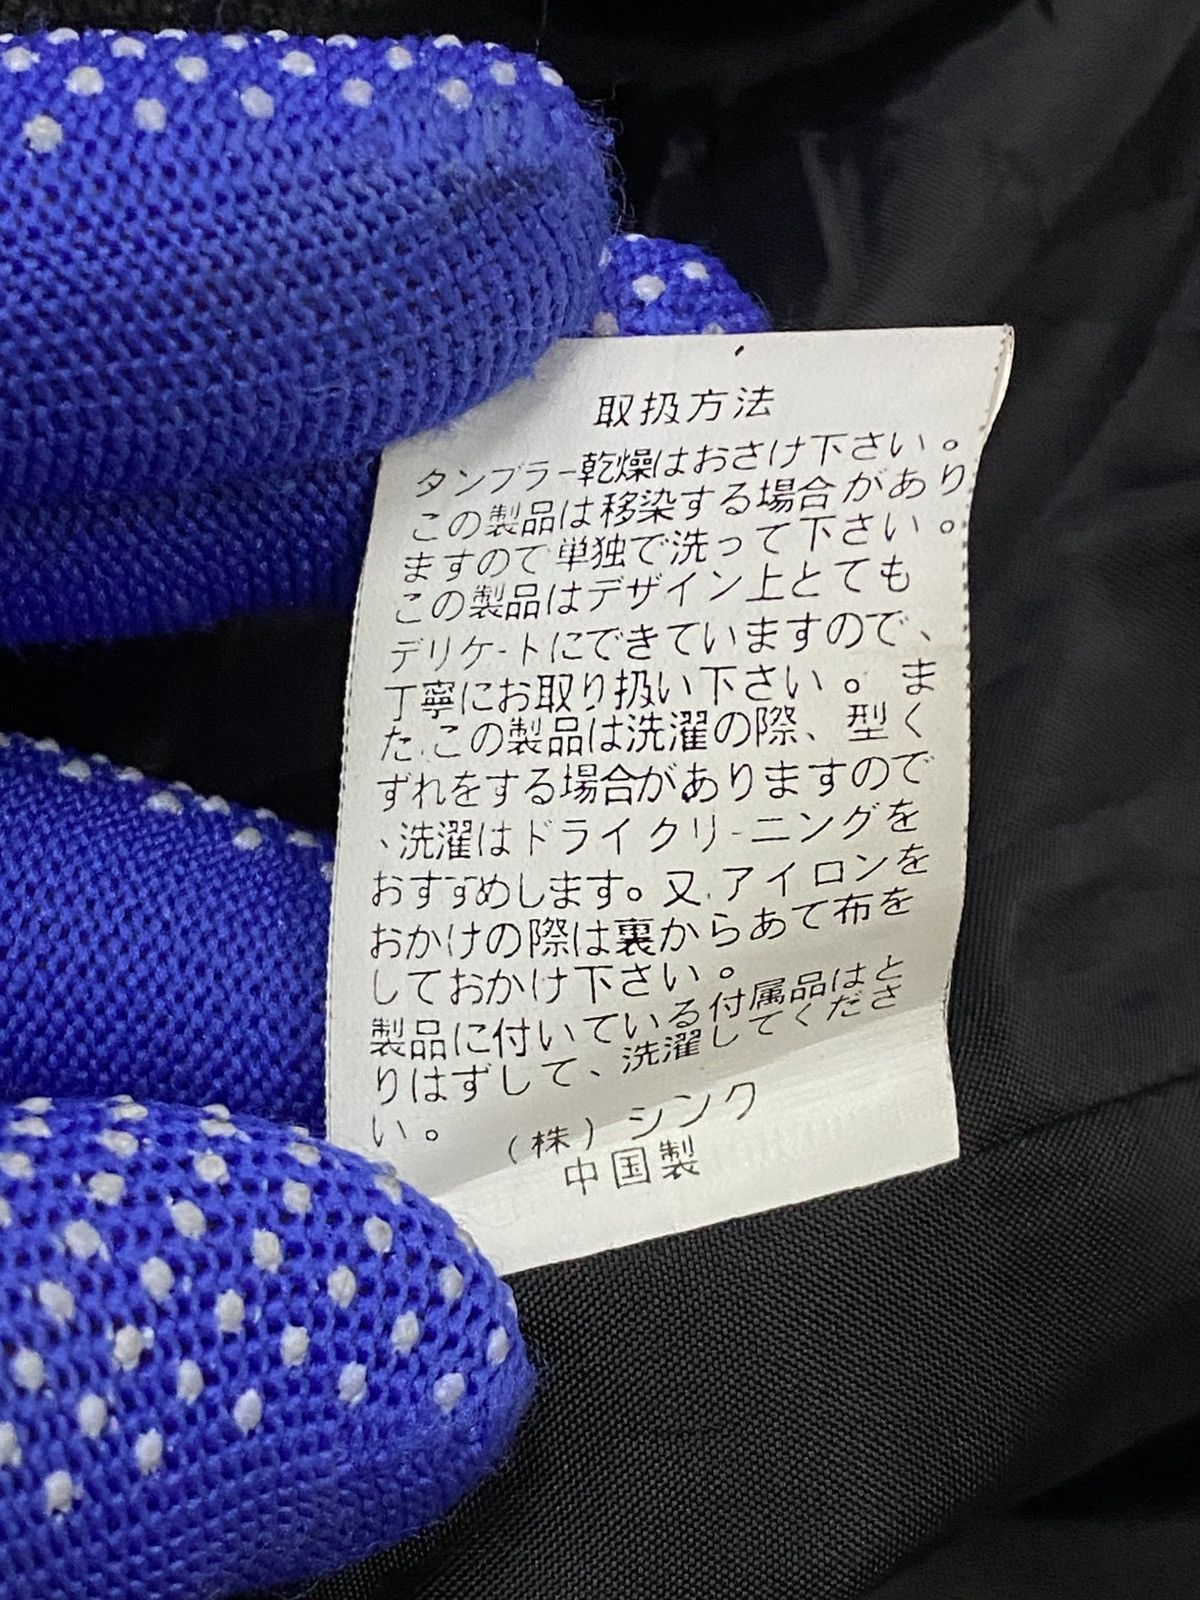 取扱方法
タンブラー乾燥はおさけ下さい。
この製品は移染する場合があり
ますので単独で洗って下さい。
この製品はデザイン上とても
デリケートにできていますので、
丁寧にお取り扱い下さい。ま
た、この製品は洗濯の際、型く
ずれをする場合がありますので
、洗濯はドライクリーニングを
おすすめします。又、アイロンを
おかけの際は裏からあて布を
しておかけ下さい。
製品に付いている付属品はと
りはずして、洗濯してくださ
い。
(株)シンク
中国製